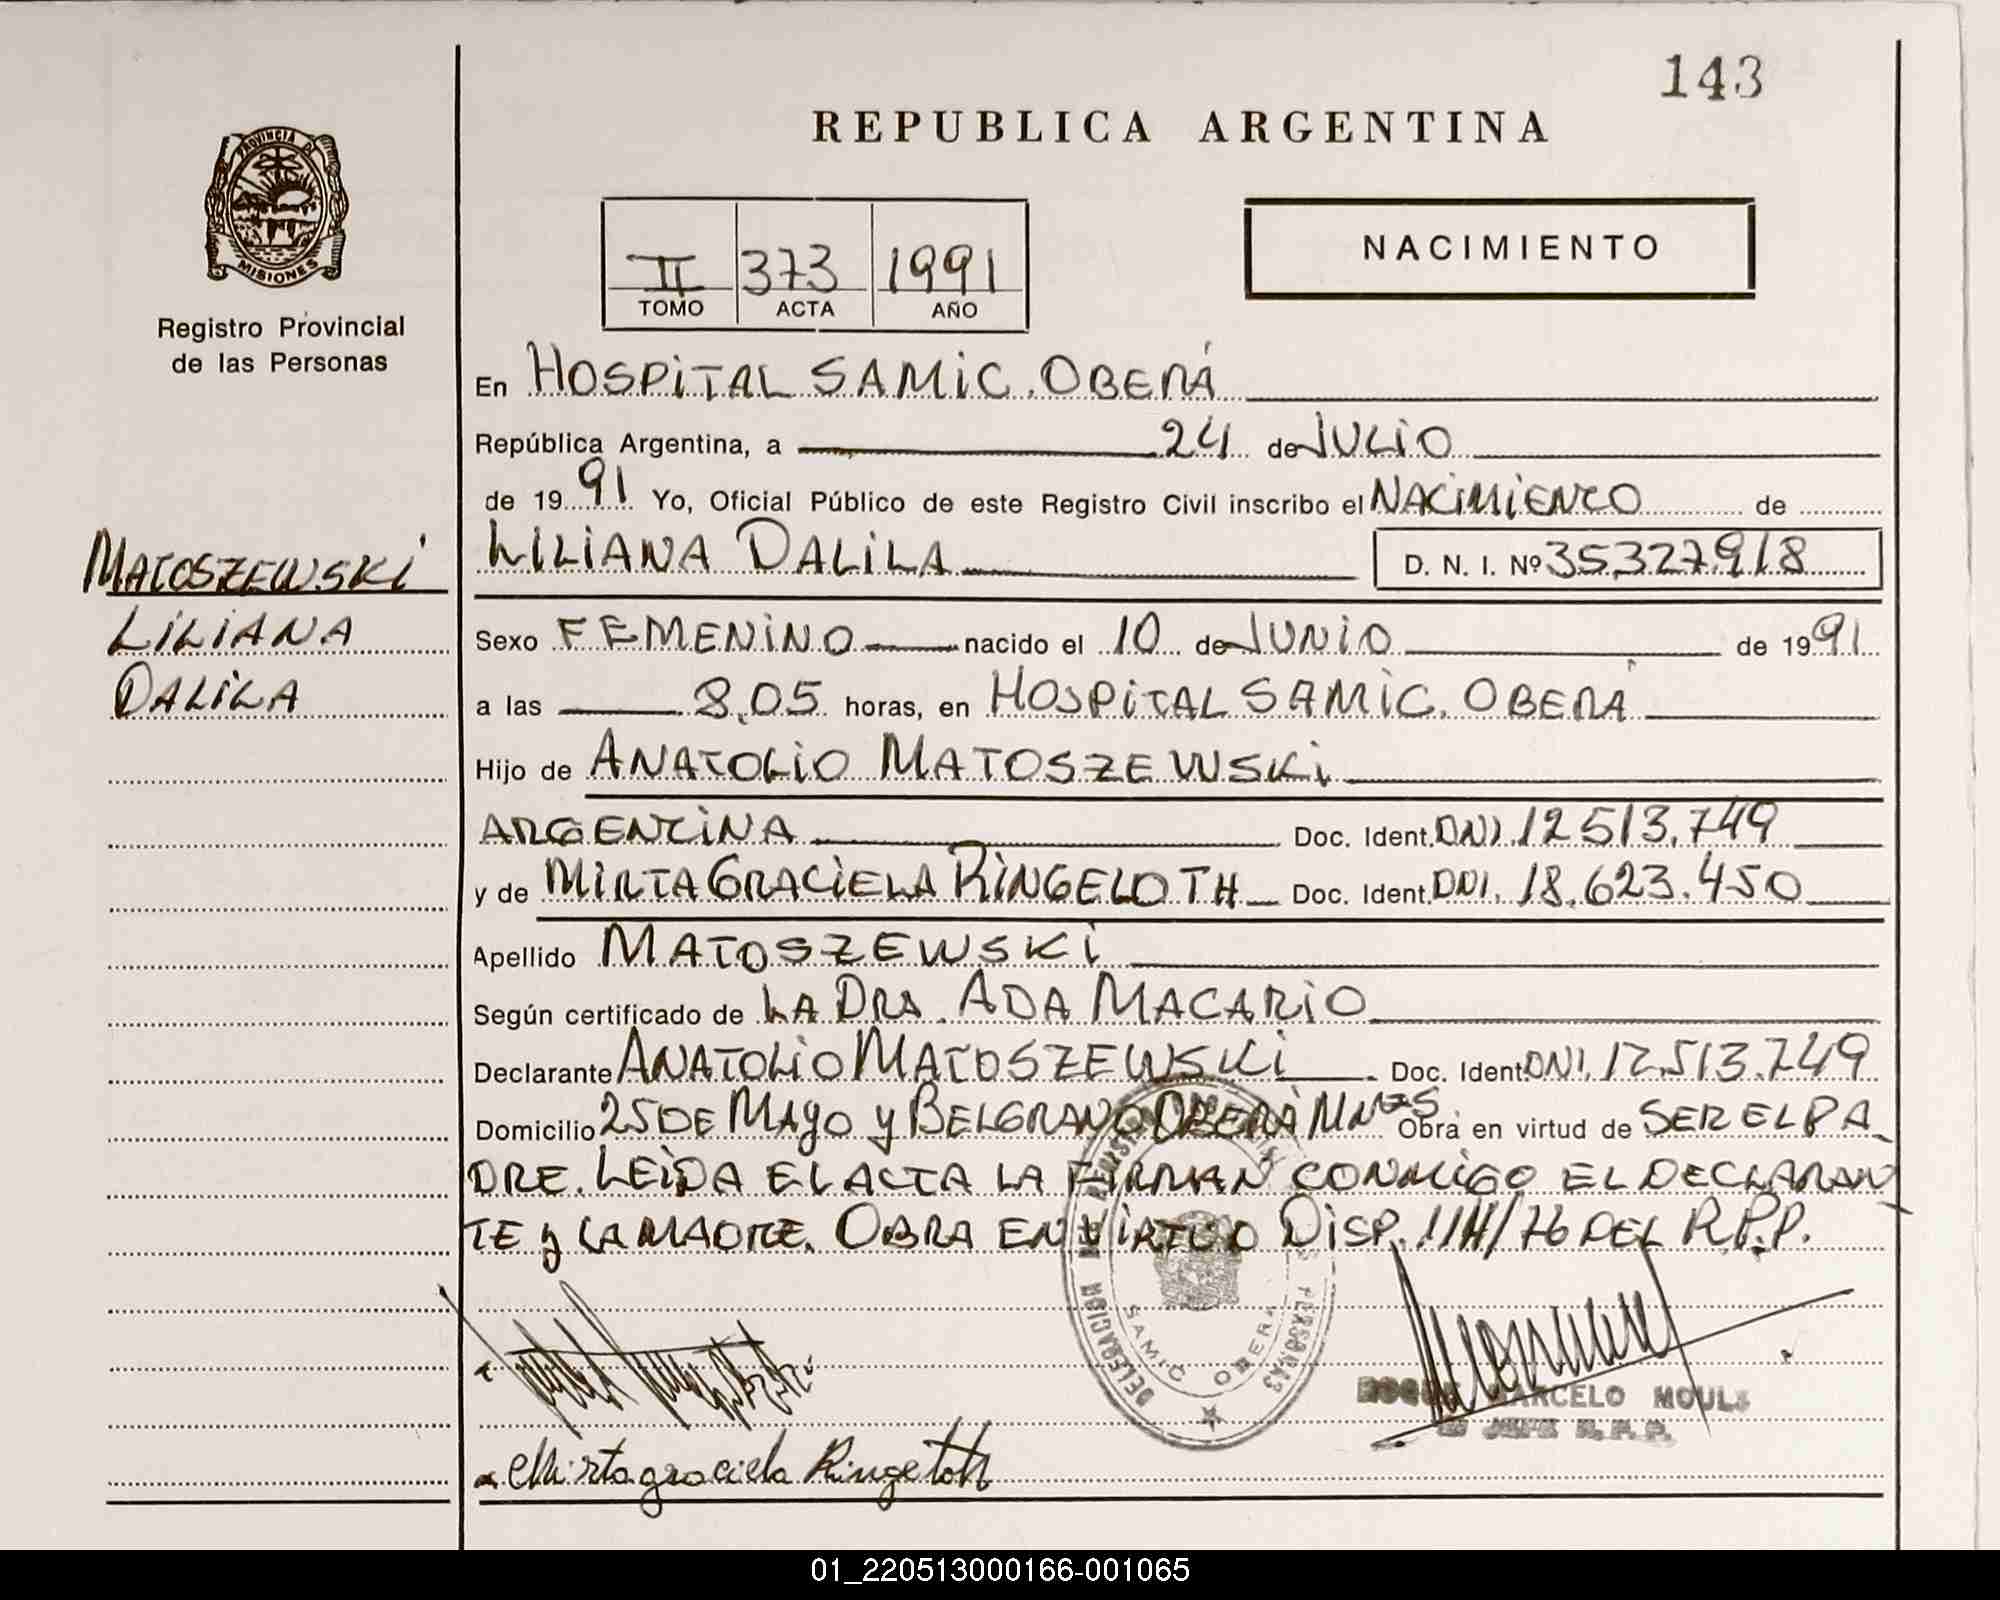 143
REPUBLICA ARGENTINA
PROVINCIA DE
MISIONES
Registro Provincial
de las Personas
II 373 1991
TOMO ACTA AÑO
NACIMIENTO
En HOSPITAL SAMIC. OBERÁ
República Argentina, a 24 de JULIO
de 1991 Yo, Oficial Público de este Registro Civil inscribo el NACIMIENTO de
MATOSZEWSKI
LILIANA
DALILA
LILIANA DALILA D. N. I. Nº 35.327.918
Sexo FEMENINO nacido el 10 de JUNIO de 1991
a las 8,05 horas, en HOSPITAL SAMIC. OBERÁ
Hijo de ANATOLIO MATOSZEWSKI
ARGENTINA Doc. Ident. DNI. 12.513.749
y de MIRTA GRACIELA RINGELOTH Doc. Ident. DNI. 18.623.450
Apellido MATOSZEWSKI
Según certificado de LA DRA. ADA MACARIO
Declarante ANATOLIO MATOSZEWSKI Doc. Ident. DNI. 12.513.749
Domicilio 25 DE MAYO Y BELGRANO OBERÁ MNES Obra en virtud de SER EL PA
DRE. LEIDA EL ACTA LA FIRMAN CONMIGO EL DECLARAN
TE Y LA MADRE. OBRA EN VIRTUD DISP. 114/76 DEL R.P.P.
DELEGACION PERSONAS
SAMIC OBERA
MARCELO
JEFE R.P.P.
Mirta graciela Ringeloth
01_220513000166-001065